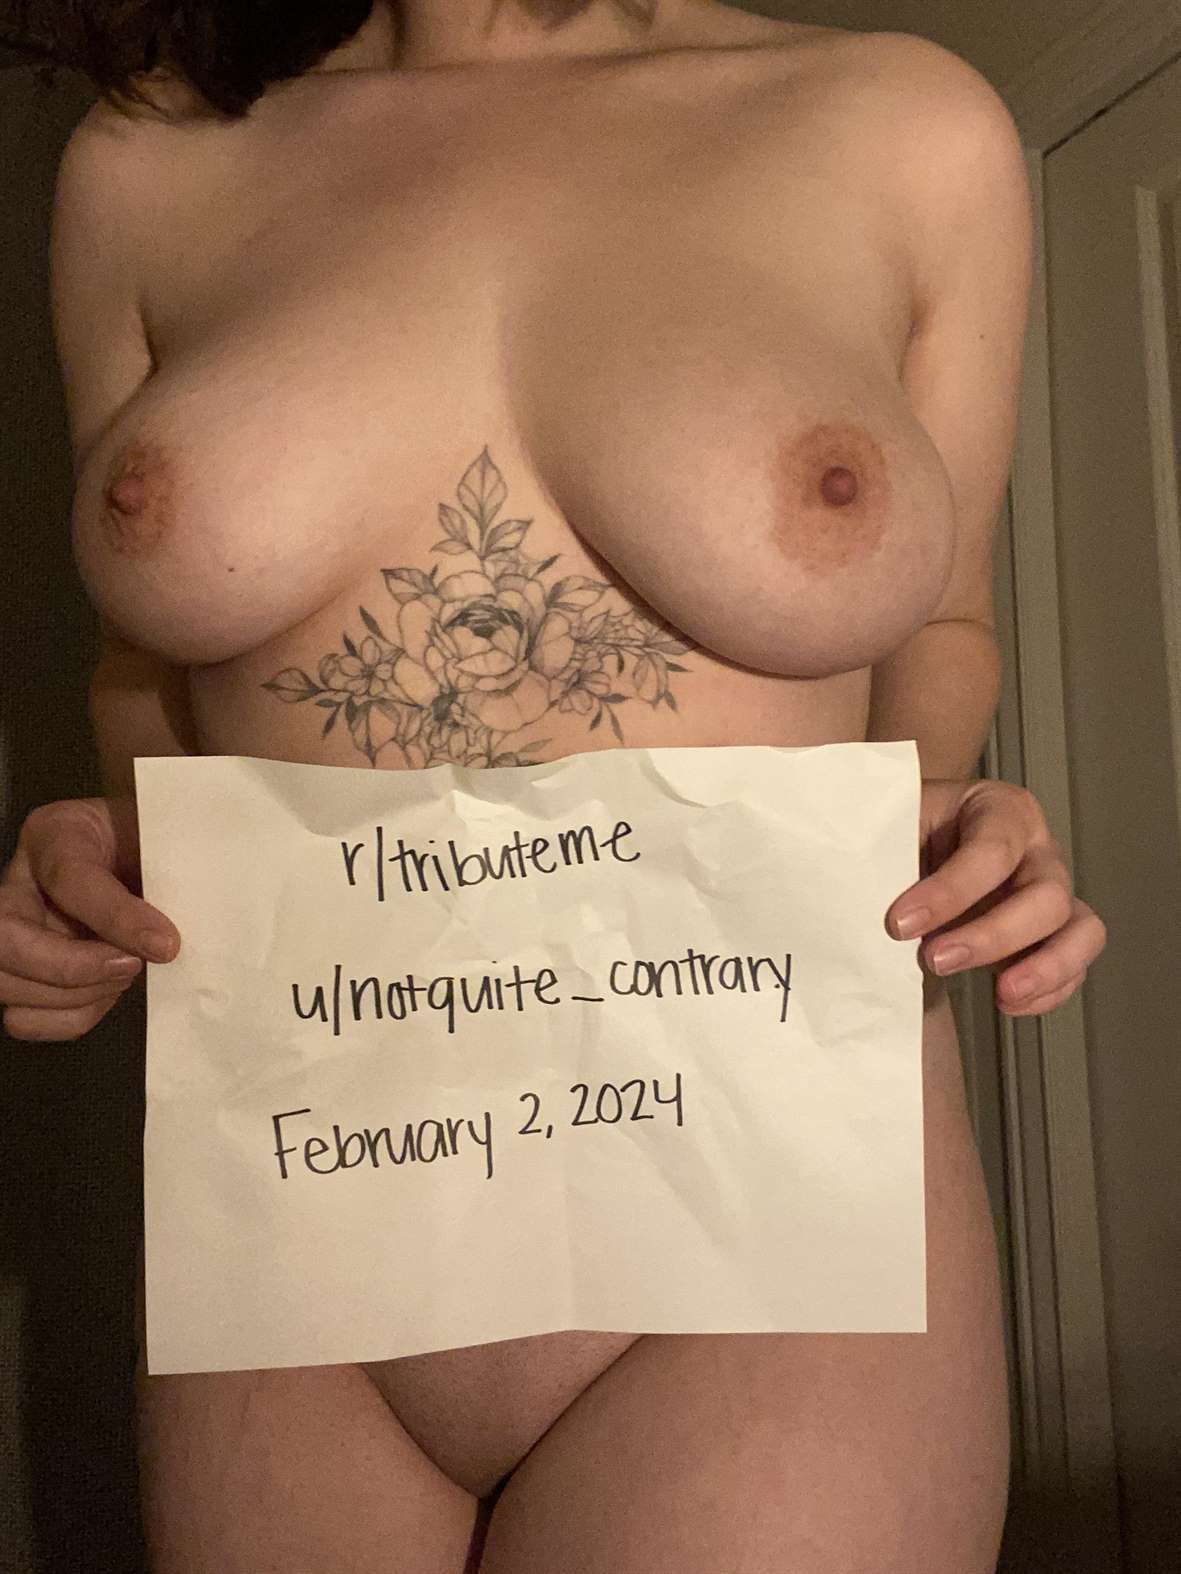 r/tributeme
u/notquite_contrary
February 2, 2024